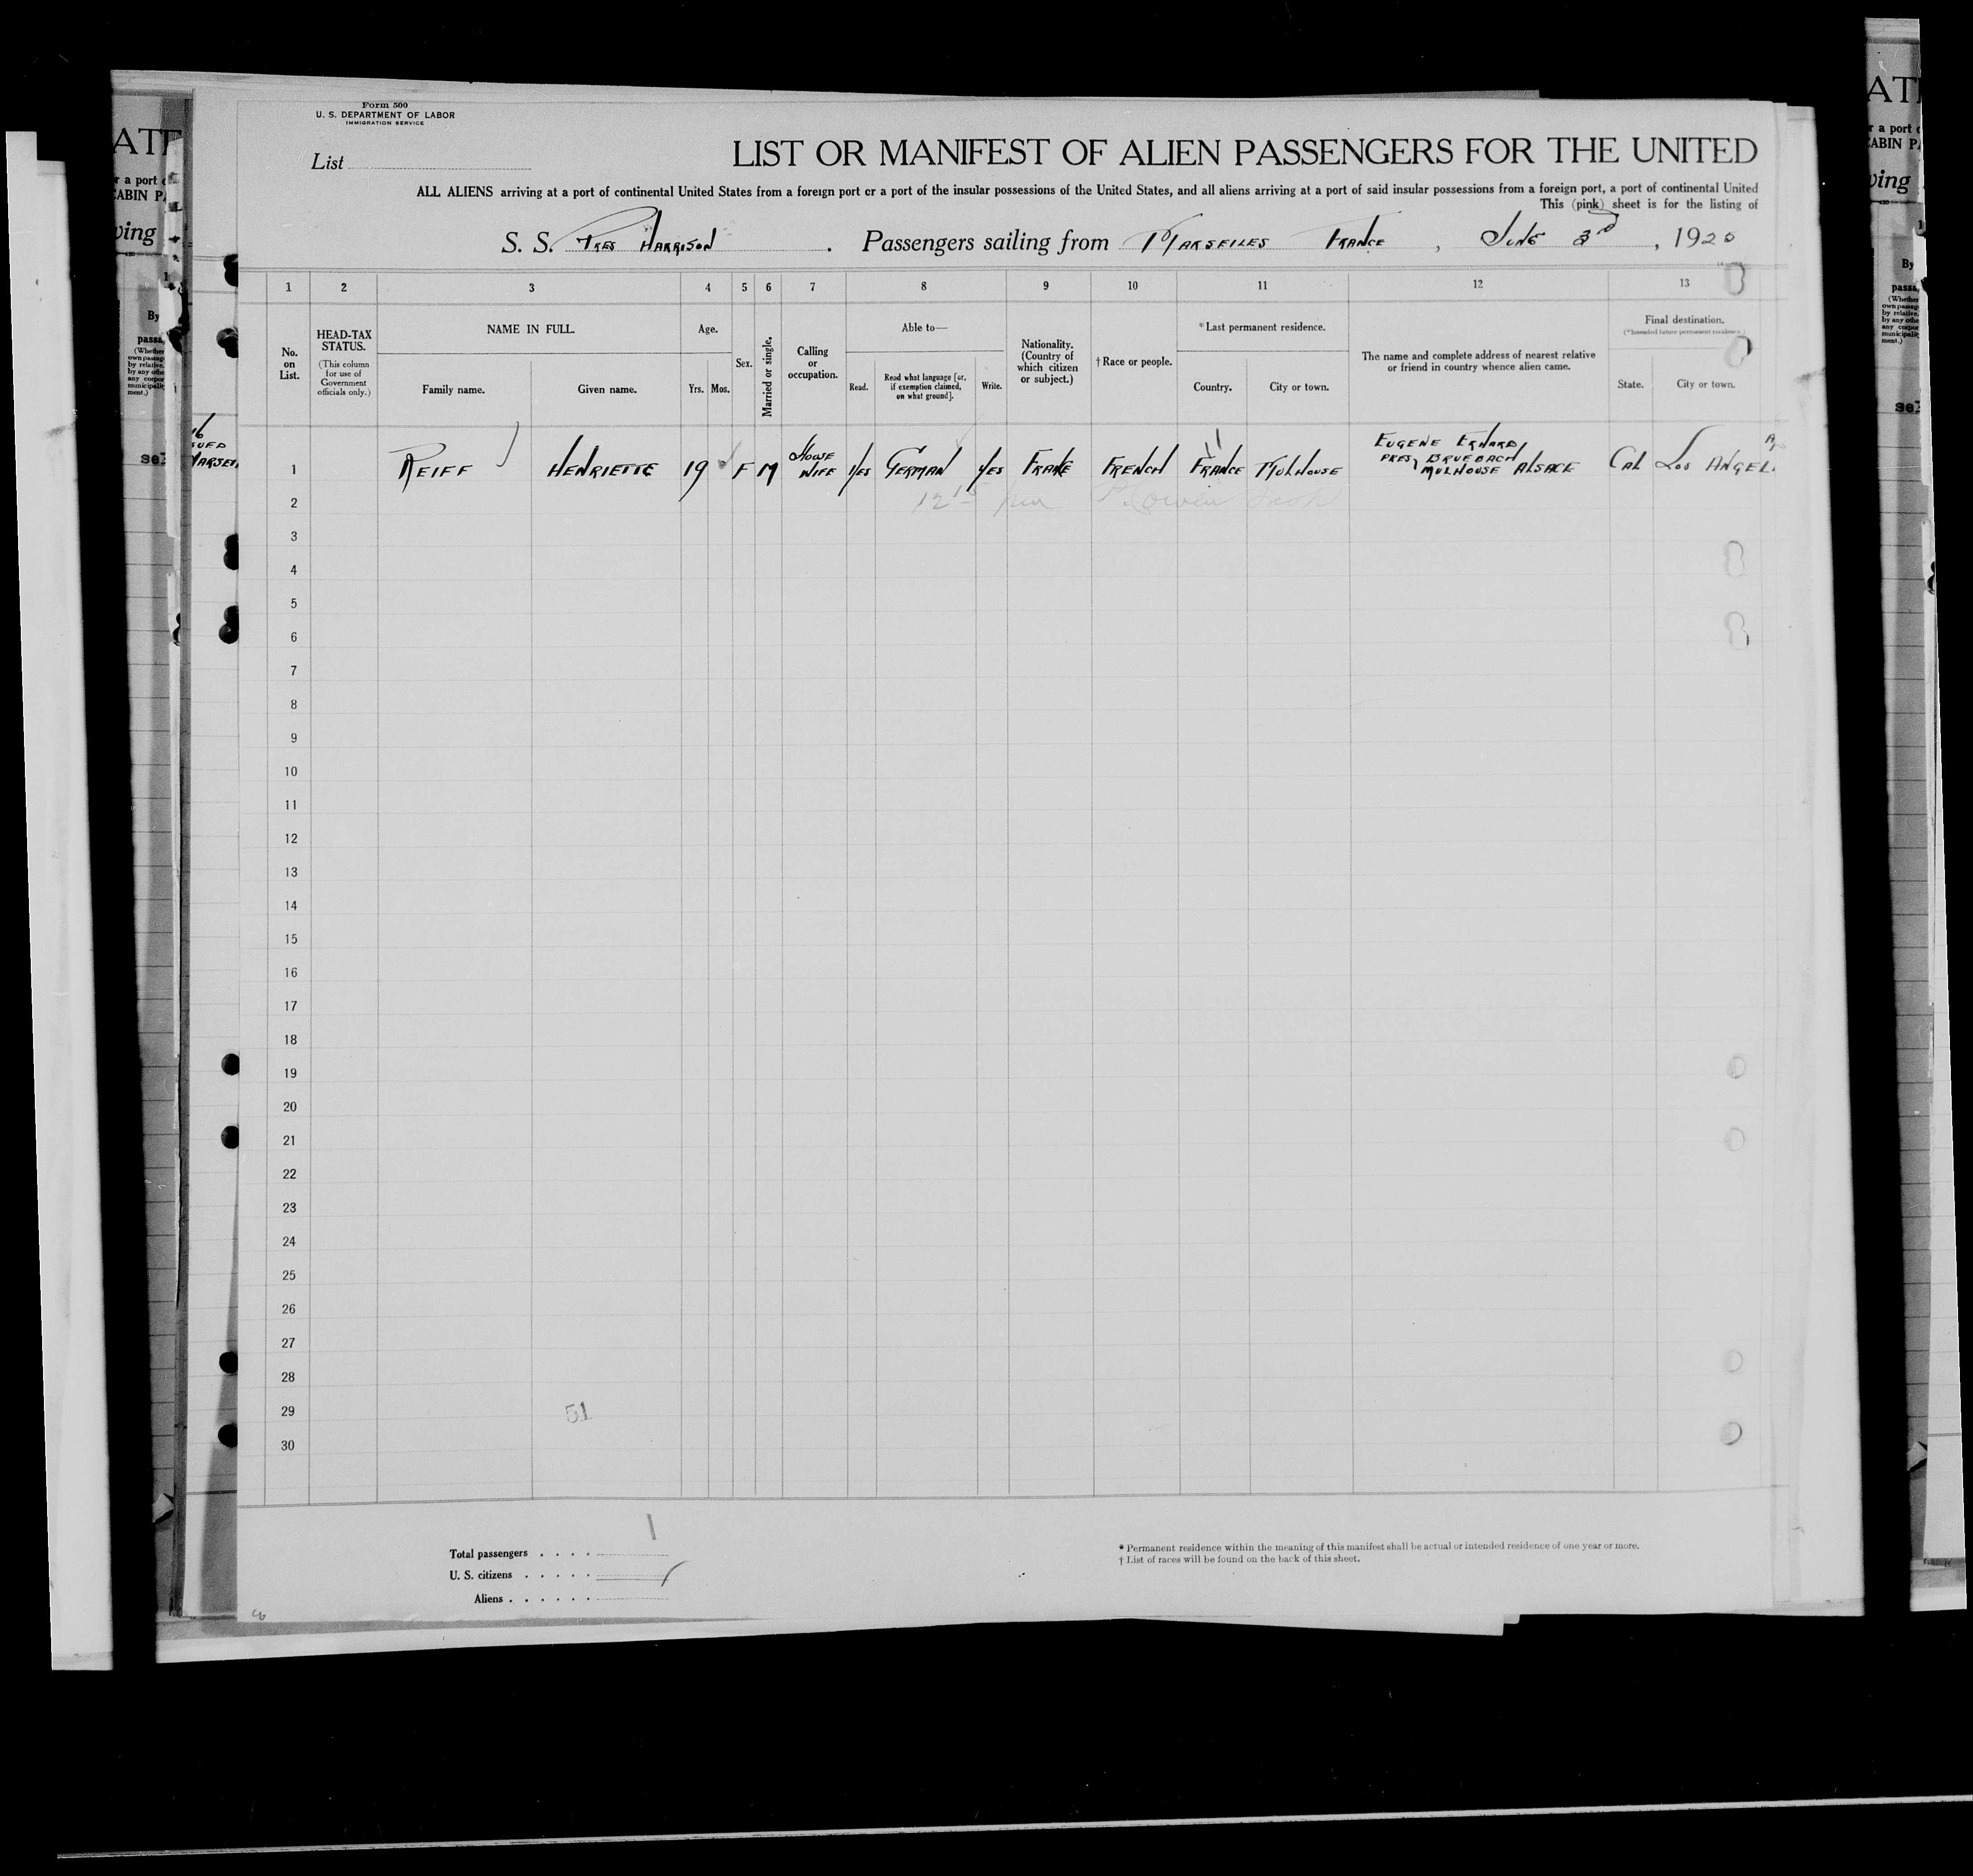 Form 500
U. S. DEPARTMENT OF LABOR
IMMIGRATION SERVICE
List
LIST OR MANIFEST OF ALIEN PASSENGERS FOR THE UNITED
ALL ALIENS arriving at a port of continental United States from a foreign port or a port of the insular possessions of the United States, and all aliens arriving at a port of said insular possessions from a foreign port, a port of continental United
This (pink) sheet is for the listing of
S. S. PRES HARRISON . Passengers sailing from MARSEILLES FRANCE , JUNE 3rd , 192
1 2 3 4 5 6 7 8 9 10 11 12 13
No. on List.
HEAD-TAX STATUS.
(This column for use of Government officials only.)
NAME IN FULL.
Family name. Given name.
Age.
Yrs. Mos.
Sex.
Married or single.
Calling or occupation.
Able to—
Read. Read what language [or, if exemption claimed, on what ground]. Write.
Nationality. (Country of which citizen or subject.)
†Race or people.
*Last permanent residence.
Country. City or town.
The name and complete address of nearest relative or friend in country whence alien came.
Final destination.
(*Intended future permanent residence.)
State. City or town.
1 REIFF HENRIETTE 19 F M HOUSE WIFE YES GERMAN YES FRANCE FRENCH FRANCE MULHOUSE EUGENE ERHARD, PRES, BRUEBACH MULHOUSE ALSACE CAL LOS ANGEL
2
3
4
5
6
7
8
9
10
11
12
13
14
15
16
17
18
19
20
21
22
23
24
25
26
27
28
29 51
30
1
Total passengers . . . .
U. S. citizens . . . . .
Aliens . . . . . .
* Permanent residence within the meaning of this manifest shall be actual or intended residence of one year or more.
† List of races will be found on the back of this sheet.